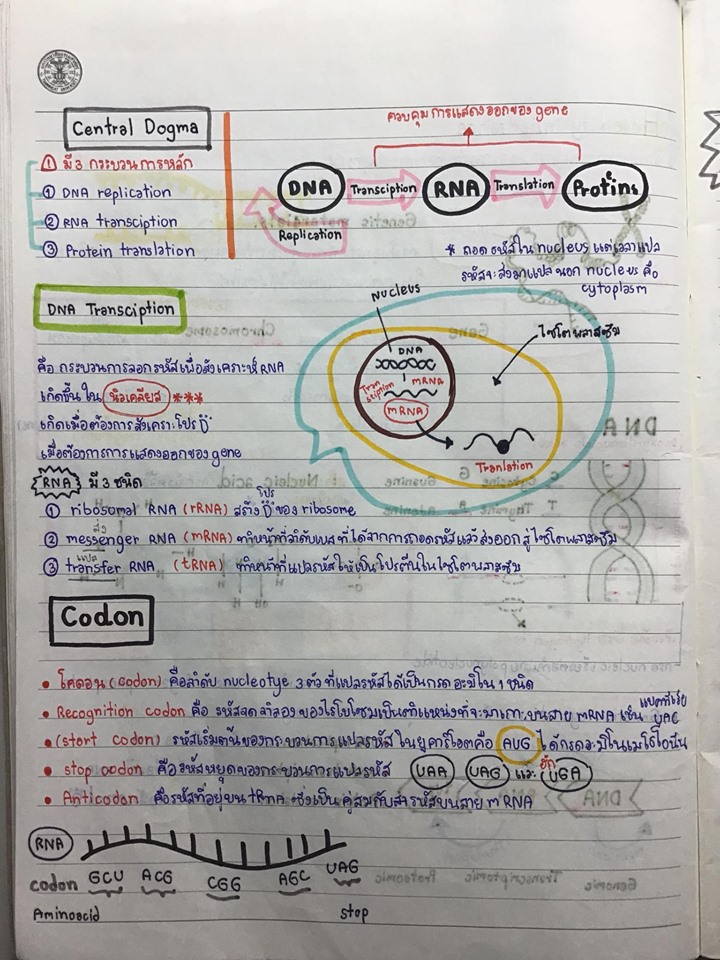 Central Dogma
① มี 3 กระบวนการหลัก
① DNA replication
② RNA transciption
③ Protein translation
ควบคุมการแสดงออกของ gene
DNA Transciption RNA Translation Protins
Replication
* ถอดรหัสใน nucleus แต่เวลาแปล
รหัสจะส่งมาแปลนอก nucleus คือ
cytoplasm
DNA Transciption
คือ กระบวนการลอกรหัสเพื่อสังเคราะห์ RNA
เกิดขึ้นใน นิวเคลียส ***
เกิดเมื่อต้องการสังเคราะโปรตีน
เมื่อต้องการการแสดงออกของ gene
Nucleus
DNA
Tran
sciption
mRNA
mRNA
ไซโตพลาสซึม
Translation
RNA มี 3 ชนิด
① ribosomal RNA (rRNA) สร้างโปรตีนของ ribosome
② messenger RNA (mRNA) ทำหน้าที่ลำดับเบสที่ได้จากการถอดรหัสแล้วส่งออกสู่ไซโตพลาสซึม
ส่ง
③ transfer RNA (tRNA) ทำหน้าที่แปลรหัสให้เป็นโปรตีนในไซโตพลาสซึม
แปล
Codon
• โคดอน (codon) คือลำดับ nucleotye 3 ตัวที่แปลรหัสได้เป็นกรดอะมิโน 1 ชนิด
• Recognition codon คือ รหัสจดจำของไรโบโซมเป็นตำแหน่งที่จะมาเกาะบนสาย mRNA เช่น UAC
• (start codon) รหัสเริ่มต้นของกระบวนการแปลรหัส ในยูคาริโอตคือ AUG ได้กรดอะมิโนเมไธโอนีน
• stop codon คือรหัสหยุดของกระบวนการแปลรหัส UAA UAG และ UGA
• Anticodon คือรหัสที่อยู่บน tRNA ซึ่งเป็นคู่สมกับสารหัสบนสาย mRNA
RNA
codon GCU ACG CGG AGC UAG
Aminoacid stop